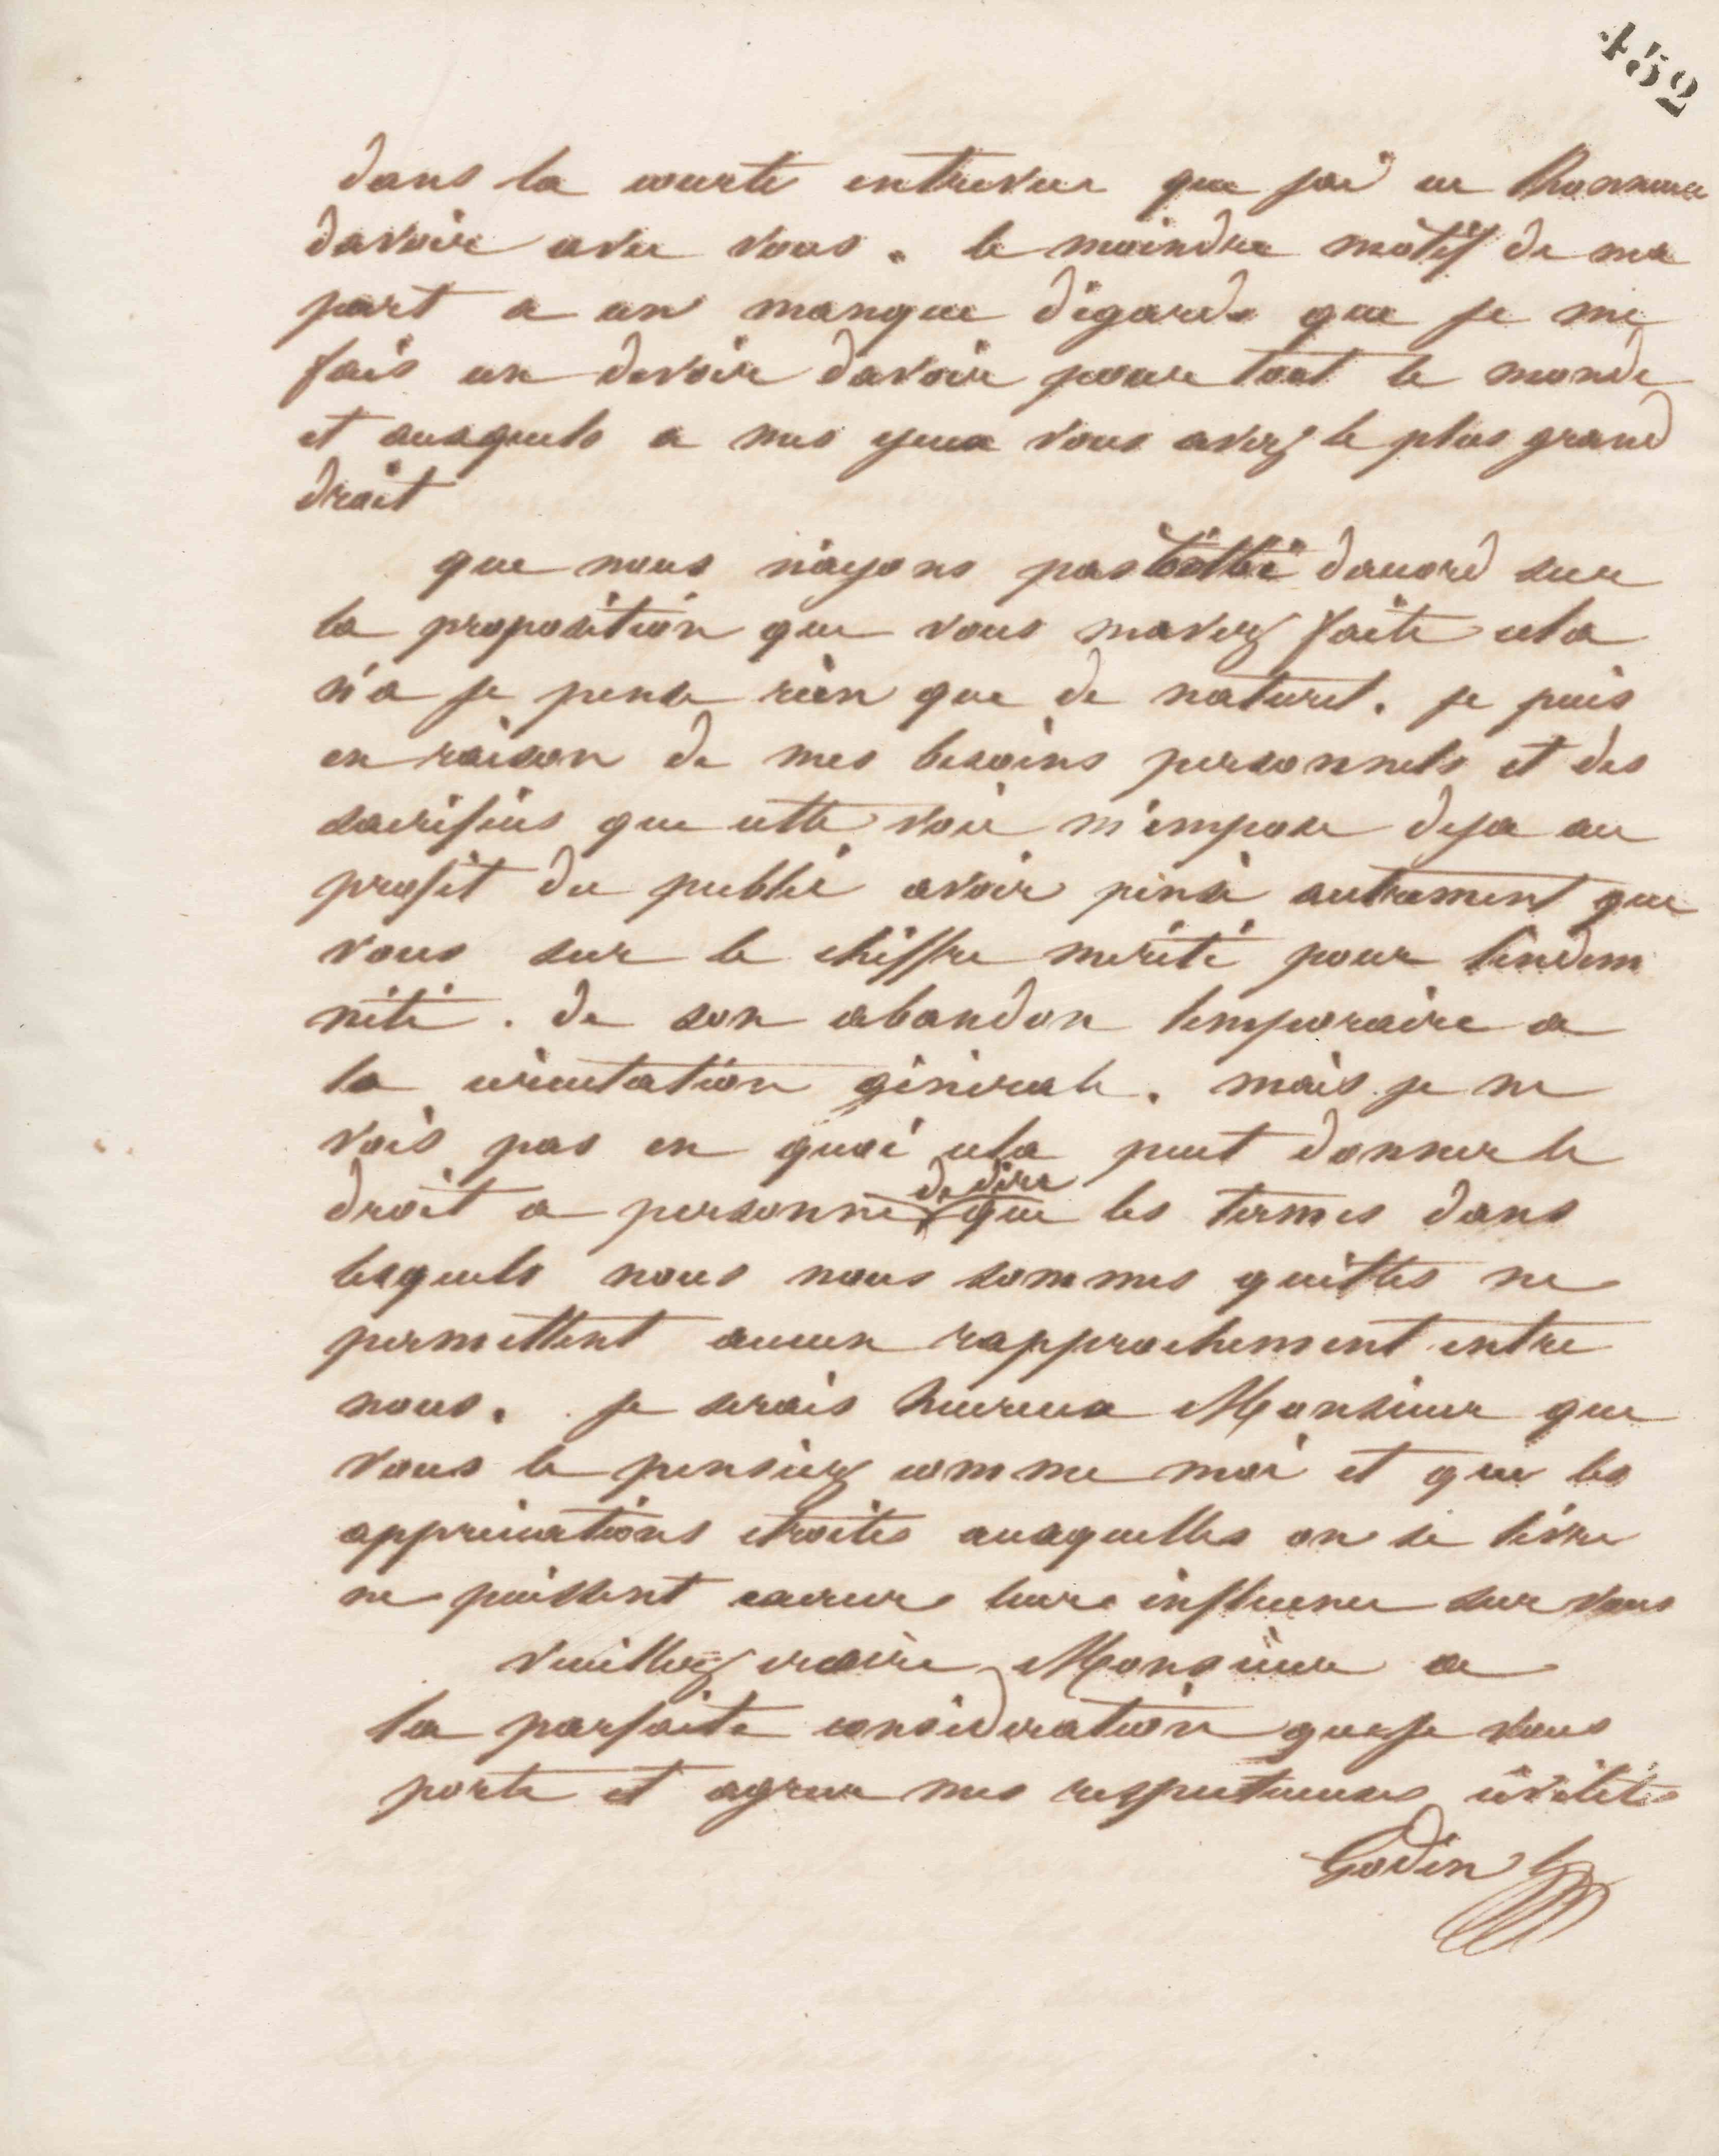 452
dans la courte entrevue que jai eu lhonneur
davoir avec vous. le moindre motif de ma
part a un manque dégards que je me
fais un devoir davoir pour tout le monde
et auxquels a mes yeux vous avez le plus grand
droit
que nous náyons pas été daccord sur
la proposition que vous mavez faite cela
n'a je pense rien que de naturel. je puis
en raison de mes besoins personnels et des
sacrifices que cette voie m'impose deja au
profit du public avoir pensé autrement que
vous sur le chiffre mérité pour lindem
nité. de son abandon temporaire a
la circulation générale. mais je ne
vois pas en quoi cela peut donner le
droit a personne de dire que les termes dans
lesquels nous nous sommes quittés ne
permettent aucun rapprochement entre
nous. je serais heureux Monsieur que
vous le pensiez comme moi et que les
appréciations etroites auxquelles on se livre
ne puissent exercer leure influence sur vous
veuillez croire Monsieur a
la parfaite considération que je vous
porte et agreer mes respectueuses civilités
Godin